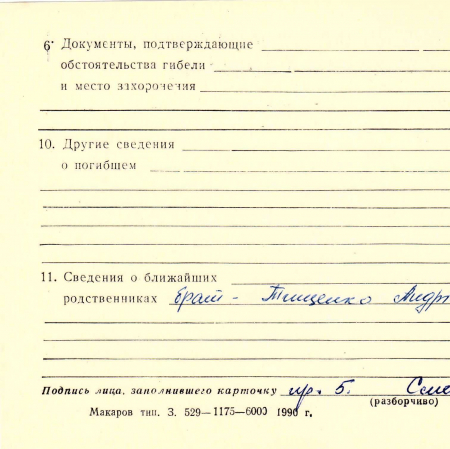 6. Документы, подтверждающие
обстоятельства гибели
и место захоронения
10. Другие сведения
о погибшем
11. Сведения о ближайших
родственниках брат - Тищенко Андр
Подпись лица, заполнившего карточку пр. Б. Сем
(разборчиво)
Макаров тип. З. 529—1175—6000 1990 г.